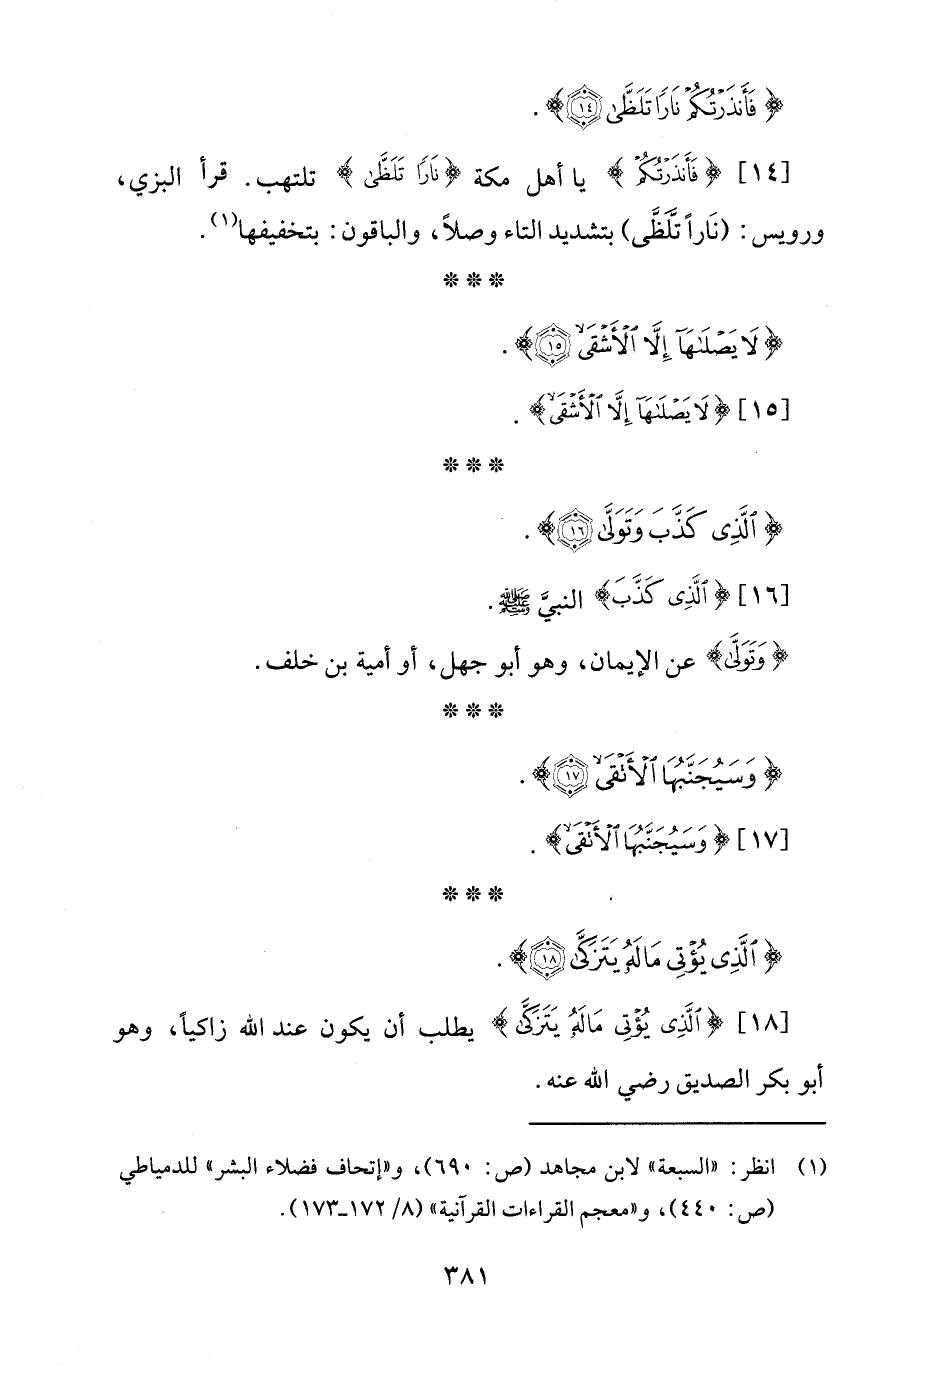 ﴿فَأَنذَرْتُكُمْ نَارًا تَلَظَّىٰ ١٤﴾ .
[١٤] ﴿فَأَنذَرْتُكُمْ﴾ يا أهل مكة ﴿نَارًا تَلَظَّىٰ﴾ تلتهب. قرأ البزي،
ورويس: (نَاراً تَّلَظَّى) بتشديد التاء وصلاً، والباقون: بتخفيفها(١).
* * *
﴿لَا يَصْلَىٰهَآ إِلَّا ٱلْأَشْقَىۙ ١٥﴾ .
[١٥] ﴿لَا يَصْلَىٰهَآ إِلَّا ٱلْأَشْقَىۙ﴾ .
* * *
﴿ٱلَّذِى كَذَّبَ وَتَوَلَّىٰ ١٦﴾ .
[١٦] ﴿ٱلَّذِى كَذَّبَ﴾ النبيَّ ﷺ .
﴿وَتَوَلَّىٰ﴾ عن الإيمان، وهو أبو جهل، أو أمية بن خلف.
* * *
﴿وَسَيُجَنَّبُهَا ٱلْأَتْقَىۙ ١٧﴾ .
[١٧] ﴿وَسَيُجَنَّبُهَا ٱلْأَتْقَىۙ﴾ .
* * *
﴿ٱلَّذِى يُؤْتِى مَالَهُۥ يَتَزَكَّىٰ ١٨﴾ .
[١٨] ﴿ٱلَّذِى يُؤْتِى مَالَهُۥ يَتَزَكَّىٰ﴾ يطلب أن يكون عند الله زاكياً، وهو
أبو بكر الصديق رضي الله عنه.
(١) انظر: «السبعة» لابن مجاهد (ص: ٦٩٠)، و«إتحاف فضلاء البشر» للدمياطي
(ص: ٤٤٠)، و«معجم القراءات القرآنية» (٨/ ١٧٢-١٧٣).
٣٨١